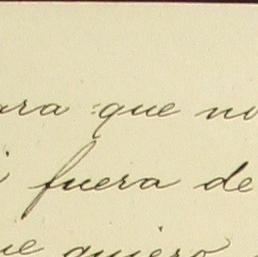 ara que no
i fuera de
ue quiero